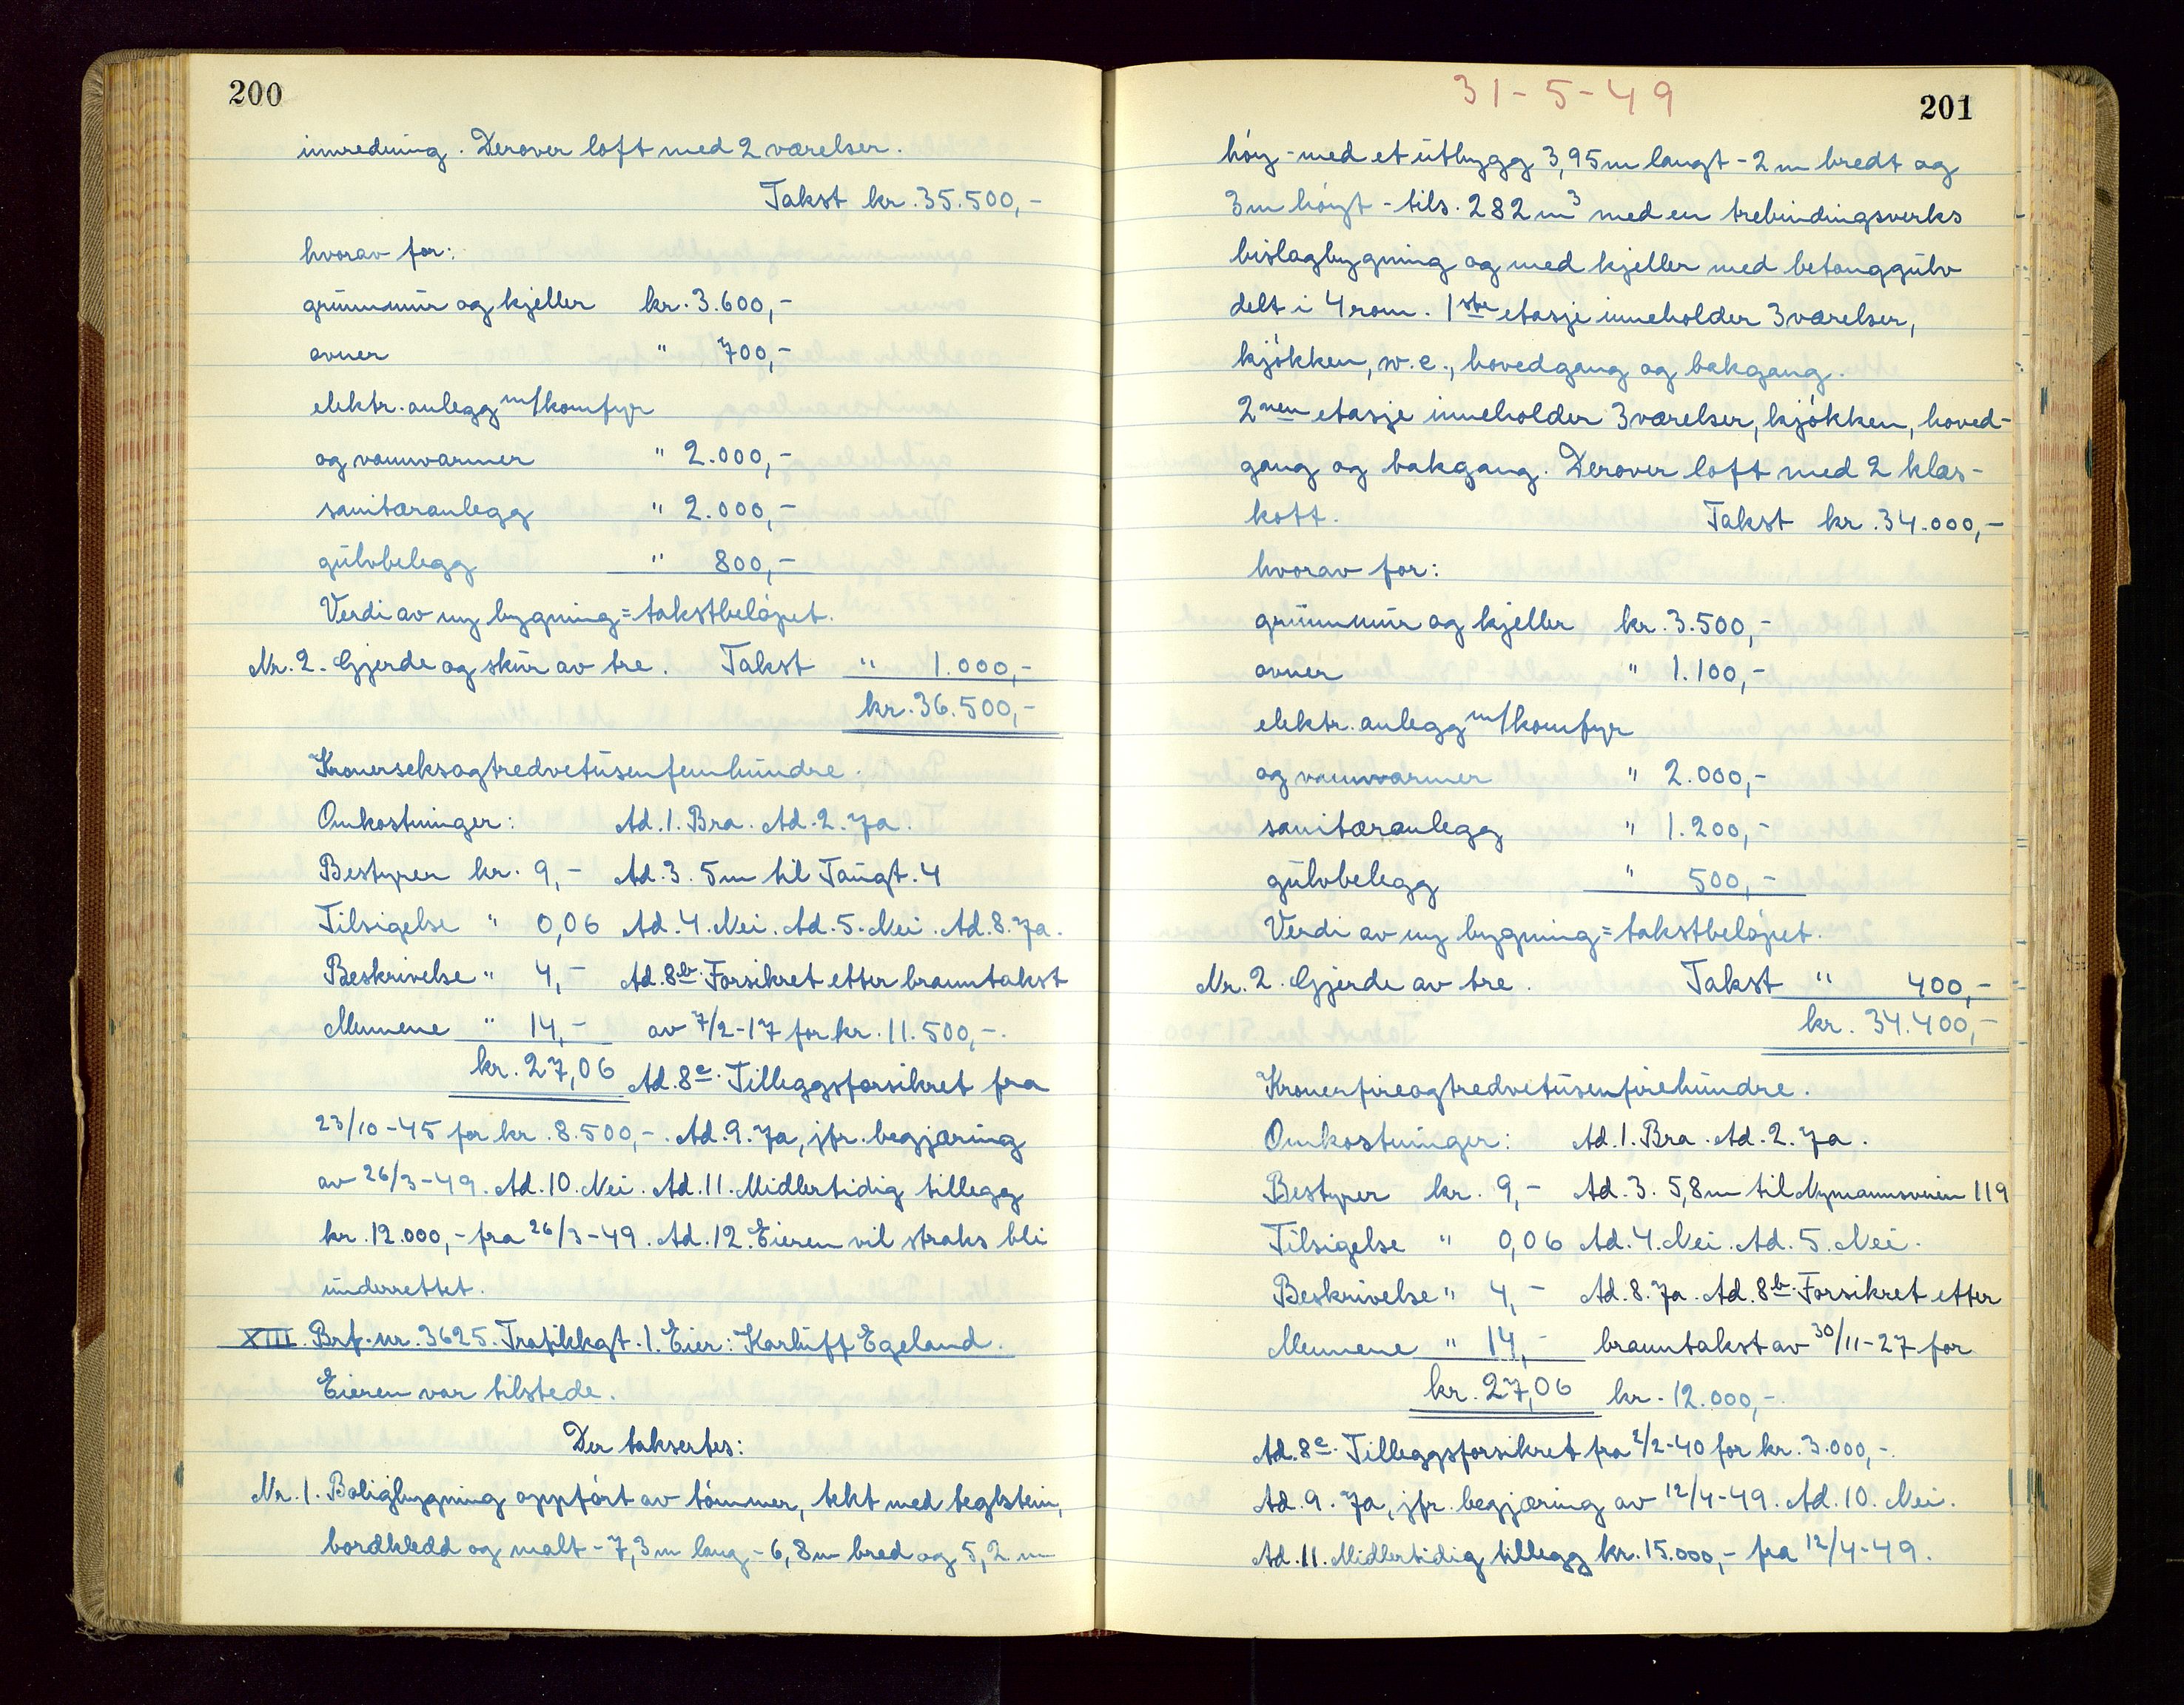 200
innredning. Derover loft med 2 værelser.
Takst kr. 35.500,-
hvorav for:
grunnmur og kjeller kr. 3.600,-
ovner " 700,-
elektr. anlegg m/komfyr
og vannvarmer " 2.000,-
sanitæranlegg " 2.000,-
gulvbelegg " 800,-
Verdi av ny bygning = takstbeløpet.
Nr. 2. Gjerde og skur av tre. Takst " 1.000,-
kr. 36.500,-
Kronerseksogtredvetusenfemhundre.
Omkostninger: Ad. 1. Bra. Ad. 2. Ja.
Bestyrer kr. 9,- Ad. 3. 5 m til Taugt. 4
Tilsigelse " 0,06 Ad. 4. Nei. Ad. 5. Nei. Ad. 8. Ja.
Beskrivelse " 4,- Ad. 8b. Forsikret etter branntakst
Mennene " 14,- av 7/2-17 for kr. 11.500,-.
kr. 27,06 Ad. 8c. Tilleggsforsikret fra
23/10-45 for kr. 8.500,-. Ad. 9. Ja, jfr. begjæring
av 26/3-49. Ad. 10. Nei. Ad. 11. Midlertidig tillegg
kr. 12.000,- fra 26/3-49. Ad. 12. Eieren vil straks bli
underrettet.
XIII. Brf. nr. 3625. Trafikkgt. 1. Eier: Karluff Egeland.
Eieren var tilstede.
Der taksertes:
Nr. 1. Boligbygning oppført av tømmer, tekt med teglstein,
bordkledd og malt - 7,3 m lang - 6,8 m bred og 5,2 m
31-5-49
201
høy - med et utbygg 3,95 m langt - 2 m bredt og
3 m høyt - tils. 282 m3 med en trebindingsverks
bislagbygning og med kjeller med betonggulv
delt i 4 rom. 1ste etasje inneholder 3 værelser,
kjøkken, w.c., hovedgang og bakgang.
2nen etasje inneholder 3 værelser, kjøkken, hoved-
gang og bakgang. Derover loft med 2 klæs-
kott. Takst kr. 34.000,-
hvorav for:
grunnmur og kjeller kr. 3.500,-
ovner " 1.100,-
elektr. anlegg m/komfyr
og vannvarmer " 2.000,-
sanitæranlegg " 1.200,-
gulvbelegg " 500,-
Verdi av ny bygning = takstbeløpet.
Nr. 2. Gjerde av tre. Takst " 400,-
kr. 34.400,-
Kronerfireogtredvetusenfirehundre.
Omkostninger: Ad. 1. Bra. Ad. 2. Ja.
Bestyrer kr. 9,- Ad. 3. 5,8 m til Nymannsveien 119
Tilsigelse " 0,06 Ad. 4. Nei. Ad. 5. Nei.
Beskrivelse " 4,- Ad. 8. Ja. Ad. 8b. Forsikret etter
Mennene " 14,- branntakst av 30/11-27 for
kr. 27,06 kr. 12.000,-.
Ad. 8c. Tilleggsforsikret fra 2/2-40 for kr. 3.000,-.
Ad. 9. Ja, jfr. begjæring av 12/4-49. Ad. 10. Nei.
Ad. 11. Midlertidig tillegg kr. 15.000,- fra 12/4-49.